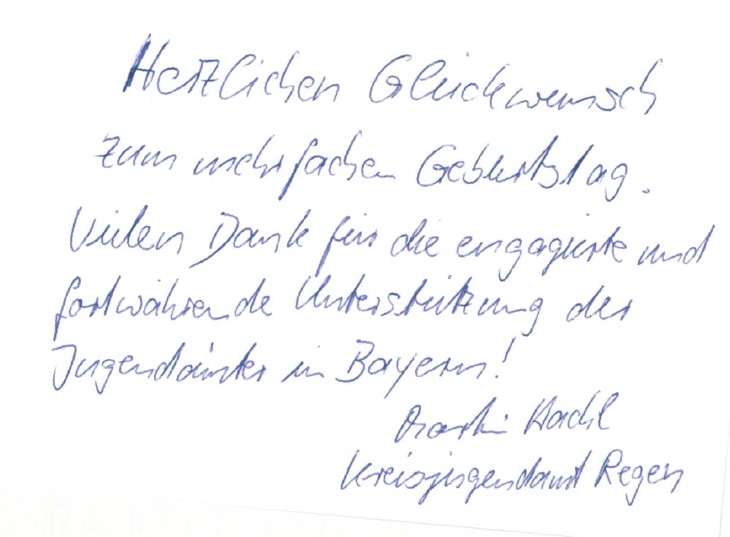 Herzlichen Glückwunsch
zum mehrfachen Geburtstag.
Vielen Dank für die engagierte und
fortwährende Unterstützung der
Jugendämter in Bayern!
Martin Hackl
Kreisjugendamt Regen